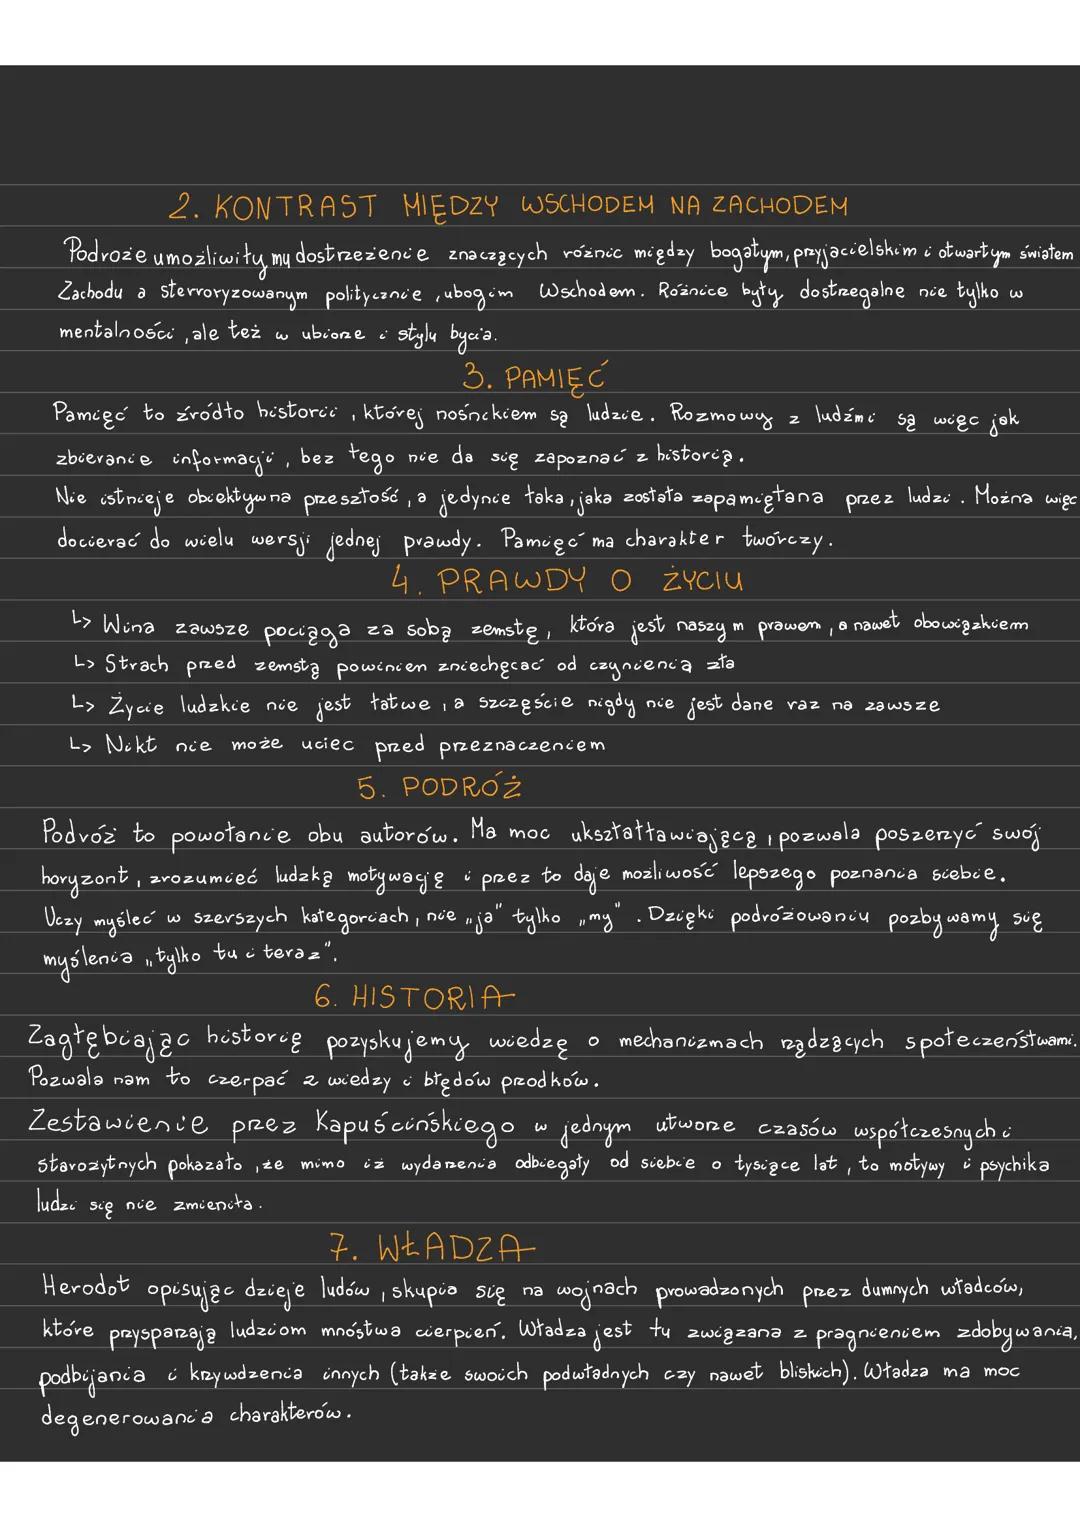 2. KONTRAST MIĘDZY WSCHODEM NA ZACHODEM
Podroże umożliwiły mu dostrzeżenie znaczących różnic między bogatym, przyjacielskim i otwartym światem
Zachodu a sterroryzowanym politycznie, ubogim Wschodem. Różnice były dostrzegalne nie tylko w
mentalności, ale też w ubiorze i stylu bycia.
3. PAMIĘĆ
Pamięć to źródło historii, której nośnikiem są ludzie. Rozmowy z ludźmi są więc jak
zbieranie informacji, bez tego nie da się zapoznać z historią.
Nie istnieje obiektywna przeszłość, a jedynie taka, jaka została zapamiętana przez ludzi. Można więc
docierać do wielu wersji jednej prawdy. Pamięć ma charakter twórczy.
4. PRAWDY O ŻYCIU
↳ Wina zawsze pociąga za sobą zemstę, która jest naszym prawem, a nawet obowiązkiem
↳ Strach przed zemstą powinien zniechęcać od czynienia zła
↳ Życie ludzkie nie jest łatwe, a szczęście nigdy nie jest dane raz na zawsze
↳ Nikt nie może uciec przed przeznaczeniem
5. PODRÓŻ
Podróż to powołanie obu autorów. Ma moc ukształtawiającą, pozwala poszerzyć swój
horyzont, zrozumieć ludzką motywację i przez to daje możliwość lepszego poznania siebie.
Uczy myśleć w szerszych kategoriach, nie „ja" tylko „my". Dzięki podróżowaniu pozbywamy się
myślenia „tylko tu i teraz".
6. HISTORIA
Zagłębiając historię pozyskujemy wiedzę o mechanizmach rządzących społeczeństwami.
Pozwala nam to czerpać z wiedzy i błędów przodków.
Zestawienie przez Kapuścińskiego w jednym utworze czasów współczesnych i
starożytnych pokazało, że mimo iż wydarzenia odbiegały od siebie o tysiące lat, to motywy i psychika
ludzi się nie zmieniła.
7. WŁADZA
Herodot opisując dzieje ludów, skupia się na wojnach prowadzonych przez dumnych władców,
które przysparzają ludziom mnóstwa cierpień. Władza jest tu związana z pragnieniem zdobywania,
podbijania i krzywdzenia innych (także swoich podwładnych czy nawet bliskich). Władza ma moc
degenerowania charakterów.